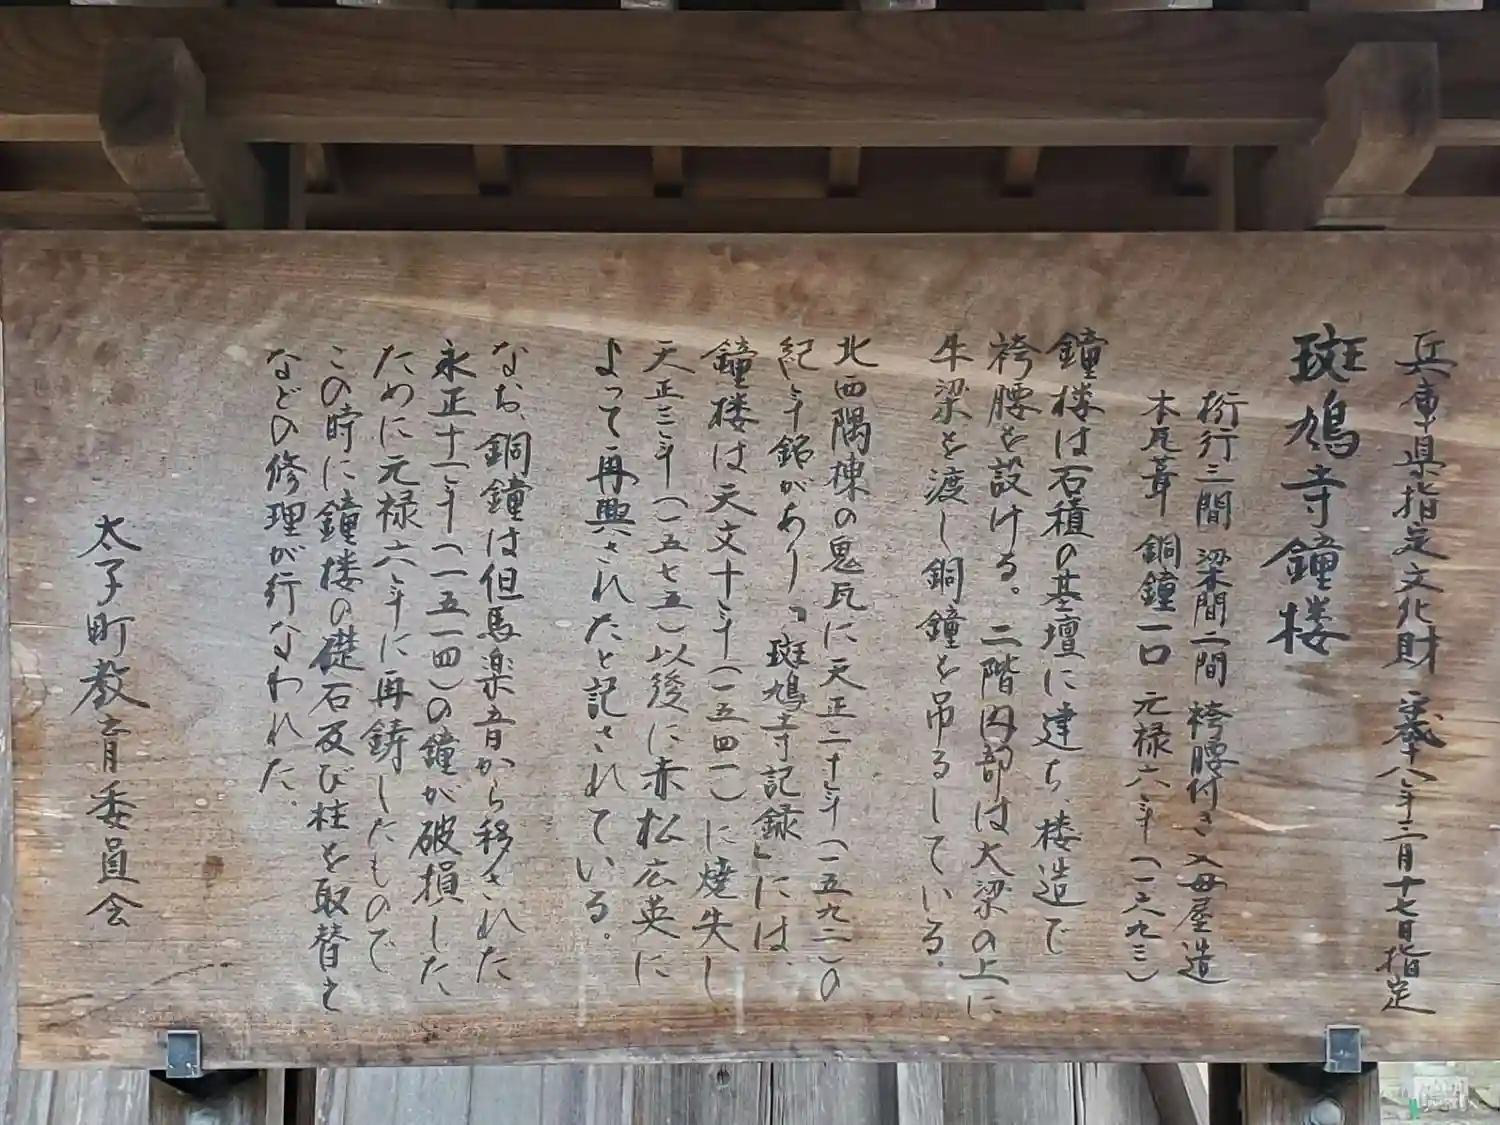 兵庫県指定文化財 平成八年三月十七日指定
斑鳩寺鐘楼
桁行三間 梁間二間 袴腰付き 入母屋造
本瓦葺 銅鐘一口 元禄六年(一六九三)
鐘楼は石積の基壇に建ち、楼造で
袴腰を設ける。二階内部は大梁の上に
牛梁を渡し銅鐘を吊るしている。
北西隅棟の鬼瓦に天正二十年(一五九二)の
紀年銘があり「斑鳩寺記録」には、
鐘楼は天文十年(一五四一)に焼失し
天正三年(一五七五)以後に赤松広英に
よって再興されたと記されている。
なお、銅鐘は但馬楽音から移された
永正十一年(一五一四)の鐘が破損した
ために元禄六年に再鋳したもので
この時に鐘楼の礎石及び柱を取替え
などの修理が行なわれた.
太子町教育委員会